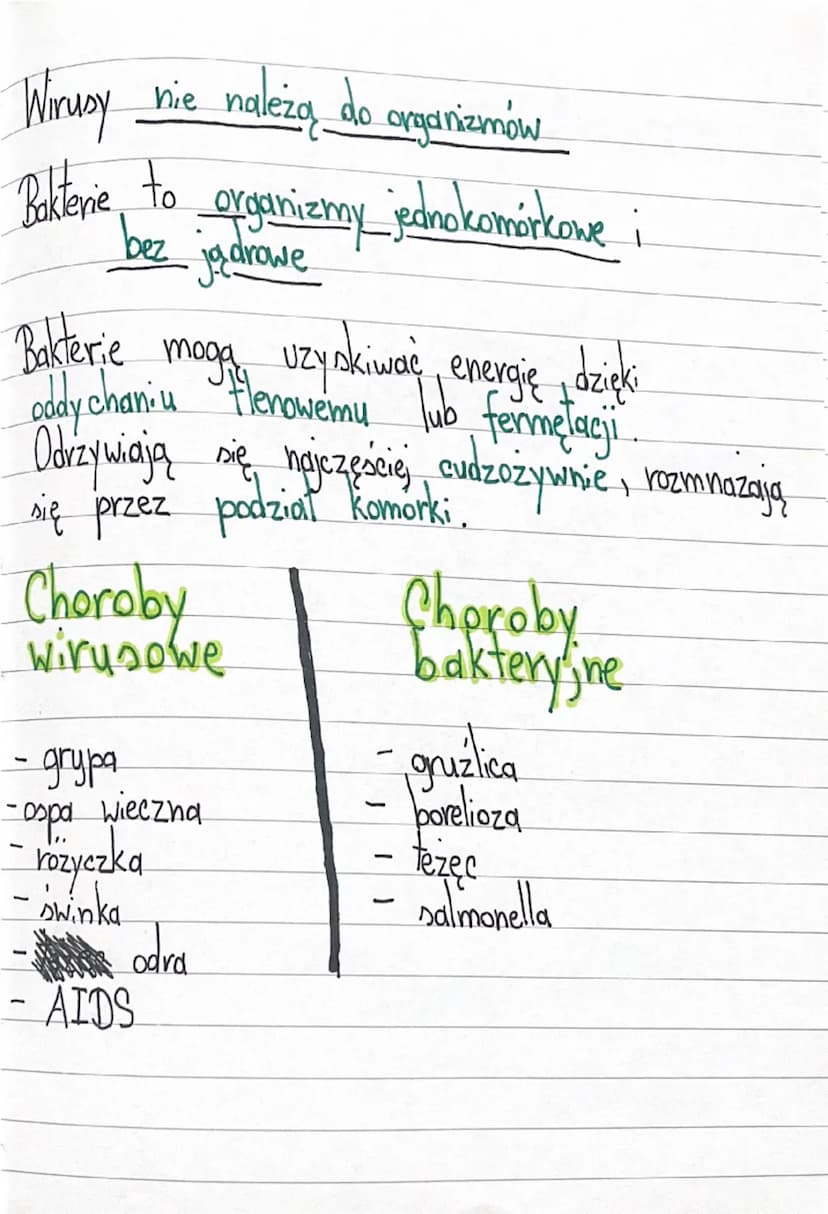 Wirusy nie należą do organizmów
Bakterie to organizmy jednokomórkowe i
bez jądrowe
Bakterie mogą uzyskiwać energię dzięki
oddychaniu tlenowemu lub fermętacji.
Odrzywiają się najczęściej cudzożywnie, rozmnażają
się przez podział komórki.
Choroby
wirusowe
- grypa
- ospa wieczna
- różyczka
- świnka
- odra
- AIDS
Choroby
bakteryjne
- gruźlica
- borelioza
- tężęc
- salmonella